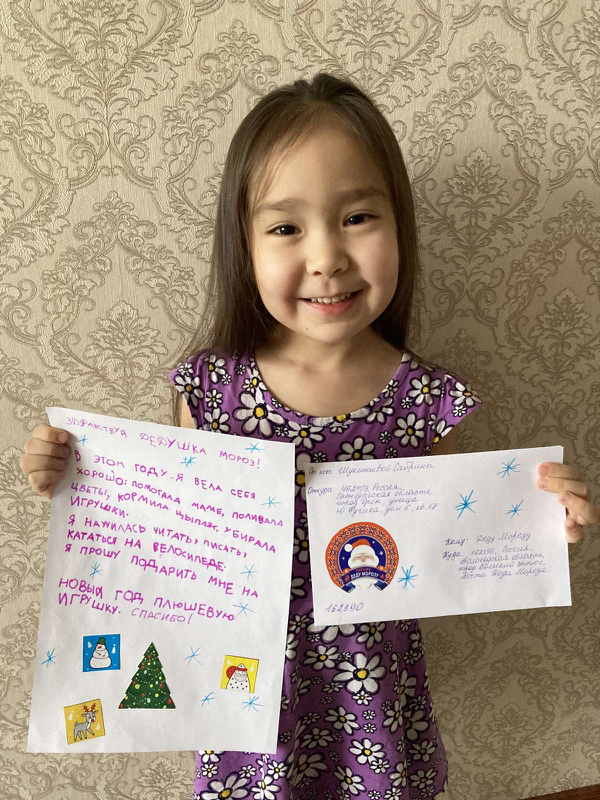 ЗДРАВСТВУЙ ДЕДУШКА МОРОЗ!
В ЭТОМ ГОДУ Я ВЕЛА СЕБЯ
ХОРОШО: ПОМОГАЛА МАМЕ, ПОЛИВАЛА
ЦВЕТЫ, КОРМИЛА ЦЫПЛЯТ, УБИРАЛА
ИГРУШКИ.
Я НАУЧИЛАСЬ ЧИТАТЬ, ПИСАТЬ,
КАТАТЬСЯ НА ВЕЛОСИПЕДЕ.
Я ПРОШУ ПОДАРИТЬ МНЕ НА
НОВЫЙ ГОД ПЛЮШЕВУЮ
ИГРУШКУ. СПАСИБО!
От кого: Сабрины
Откуда: Россия,
Оренбургская область,
город Орск, улица
Ю.Фучика, дом
ДЕДУ МОРОЗУ
162390
Кому: Деду Морозу
Куда: 162390, Россия,
Вологодская область,
город Великий Устюг,
Почта Деда Мороза